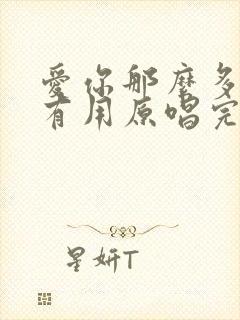 爱你那麽多
有用原唱完
星妍T